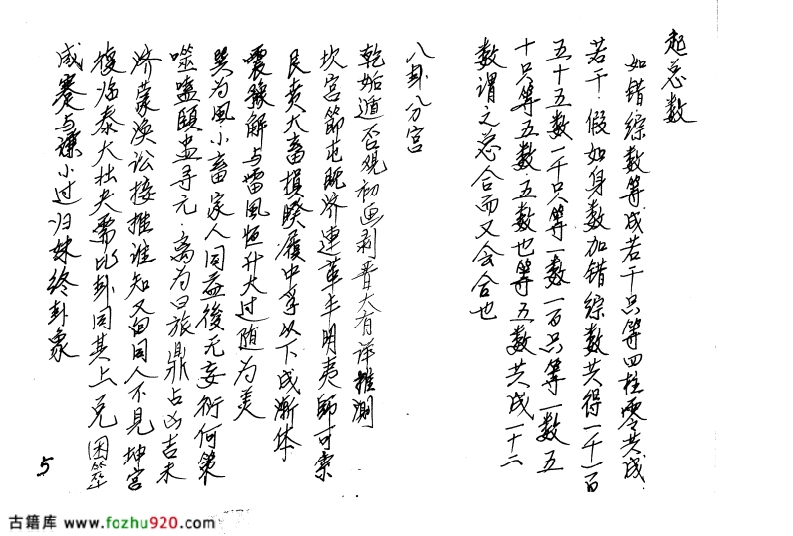 起总数
如错综数等成若干只等四柱零共成
若干假如身数加错综数共得一千一百
五十五数一千只等一数一百只等一数五
十只等五数五数也等五数共成一十二
数谓之总合而又会合也
八卦分宫
乾姤遁否观初画剥晋大有详推测
坎宫节屯既济连革丰明夷师可索
艮贲大畜损睽履中孚以下成渐体
震豫解与雷风恒升大过随为美
巽为风小畜家人同益後无妄衍何策
噬嗑颐蛊寻元离为日旅鼎占凶吉未
济蒙涣讼接推谁知又向同人不見坤宫
復临泰大壮夬需比卦同其上兑困萃
咸蹇与谦小过归妹终卦象
5
古籍库 www.fozhu920.com